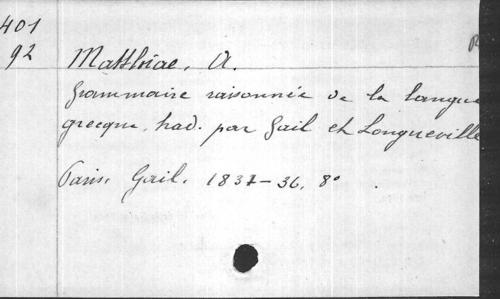 401
92
Matthiae, A.
Grammaire raisonnée de la langue
grecque, trad. par Gail et Longueville
Paris, Gail. 1831-36, 8°